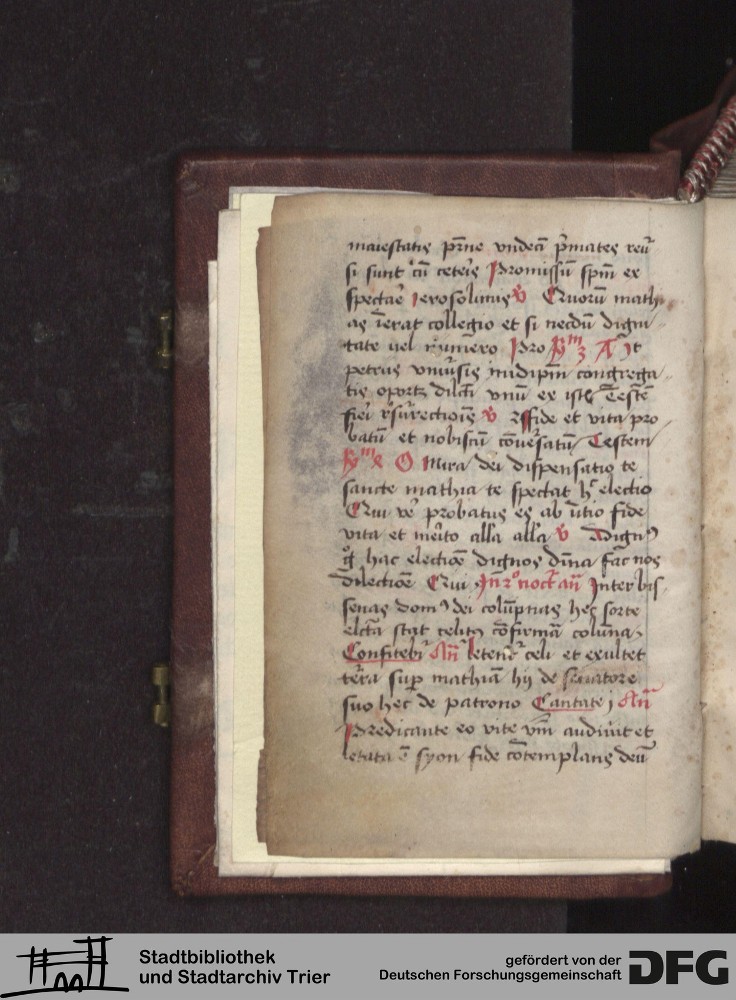 maiestatis pr̄ne vndeci p̄mates reū
si sunt cū ceteis Promissū spm̄ ex
spectare ierosolimis v̄ Quorū math
as īerat collegio et si necdū digni
tate uel numero Pro A It
petrus vniūsis indipm̄ congrega
tis oportꝫ dilcti vnū ex istis Testē
fieri rsurectiois v̄ fide et vita pro
batū et nobiscū cōuersatū Testem
O Mira dei dispensatio te
sancte mathia te spectat hc electio
Qui ve probatus es ab ītio fide
vita et meito all'a all'a v̄ Adignꝰ
hac electioe dignos dīna fac nos
dilectioe Qui In 2º noct añ Inter bis
senas domꝰ dei colūpnas hec sorte
elcta stat celitꝰ cōfirmā colūna
Confitebr Añ letent celi et exultet
terra sup mathiā hij de saluatore
suo hec de patrono Cantate j Añ
Predicante eo vite vm̄ audiuit et
letata ē syon fide cōtemplans deū
Stadtbibliothek
und Stadtarchiv Trier
gefördert von der
Deutschen Forschungsgemeinschaft
DFG